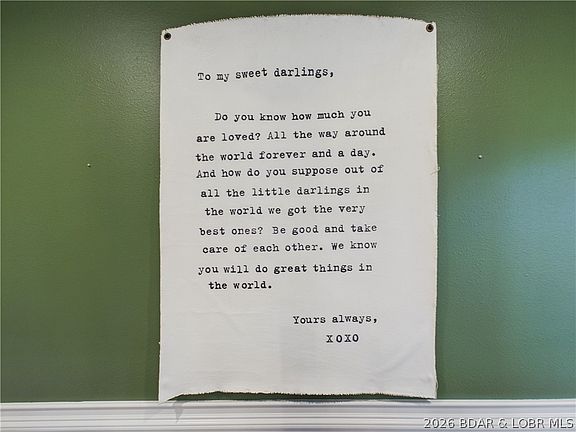 To my sweet darlings,
Do you know how much you
are loved? All the way around
the world forever and a day.
And how do you suppose out of
all the little darlings in
the world we got the very
best ones? Be good and take
care of each other. We know
you will do great things in
the world.
Yours always,
XOXO
2026 BDAR & LOBR MLS